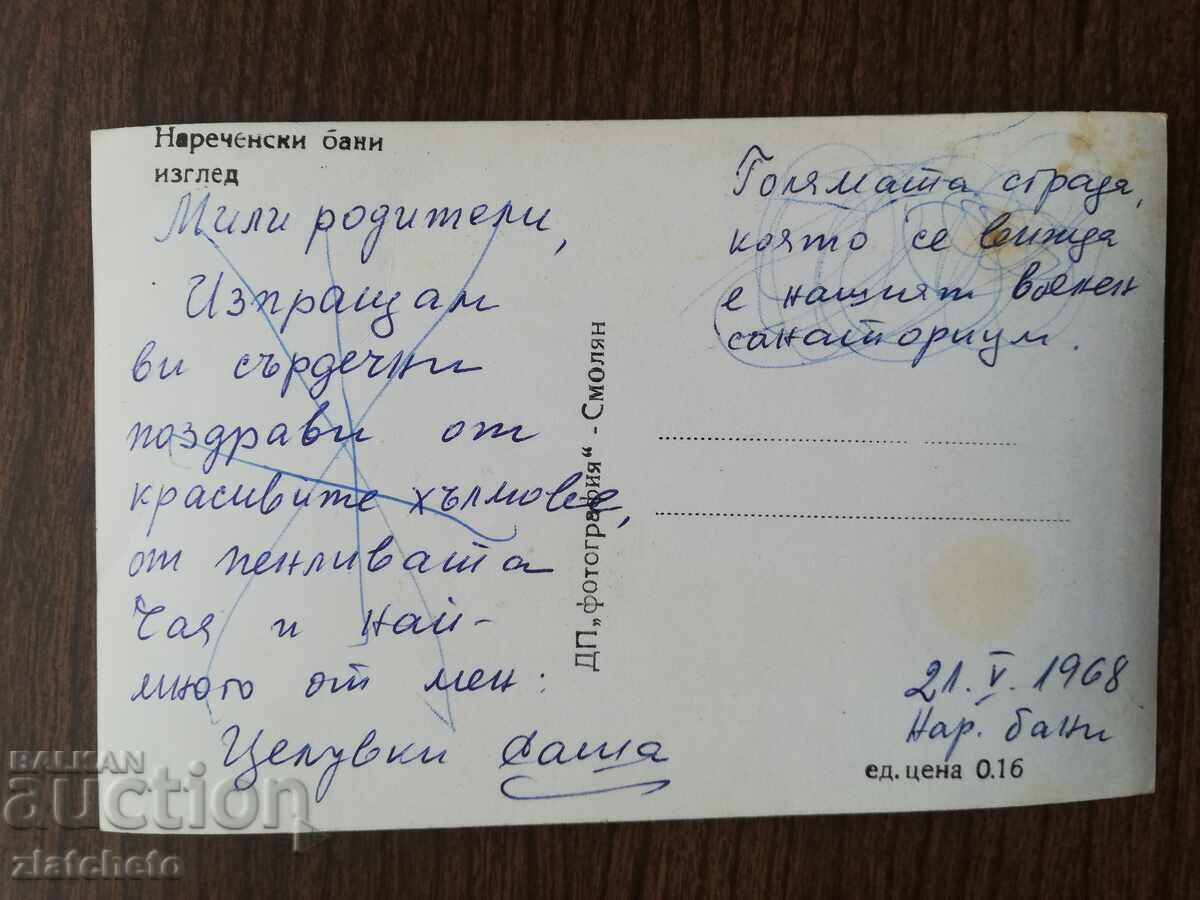 Нареченски бани
изглед
Мили родители,
Изпращам
ви сърдечни
поздрави от
красивите хълмове,
от пенливата
Чая и най-
много от мен:
Целувки Даша
ДП„фотография“ - Смолян
Голямата сграда,
която се вижда
е нашият военен
санаториум.
21. V. 1968
Нар. бани
ед. цена 0.16
BALKAN
auction
zlatcheto